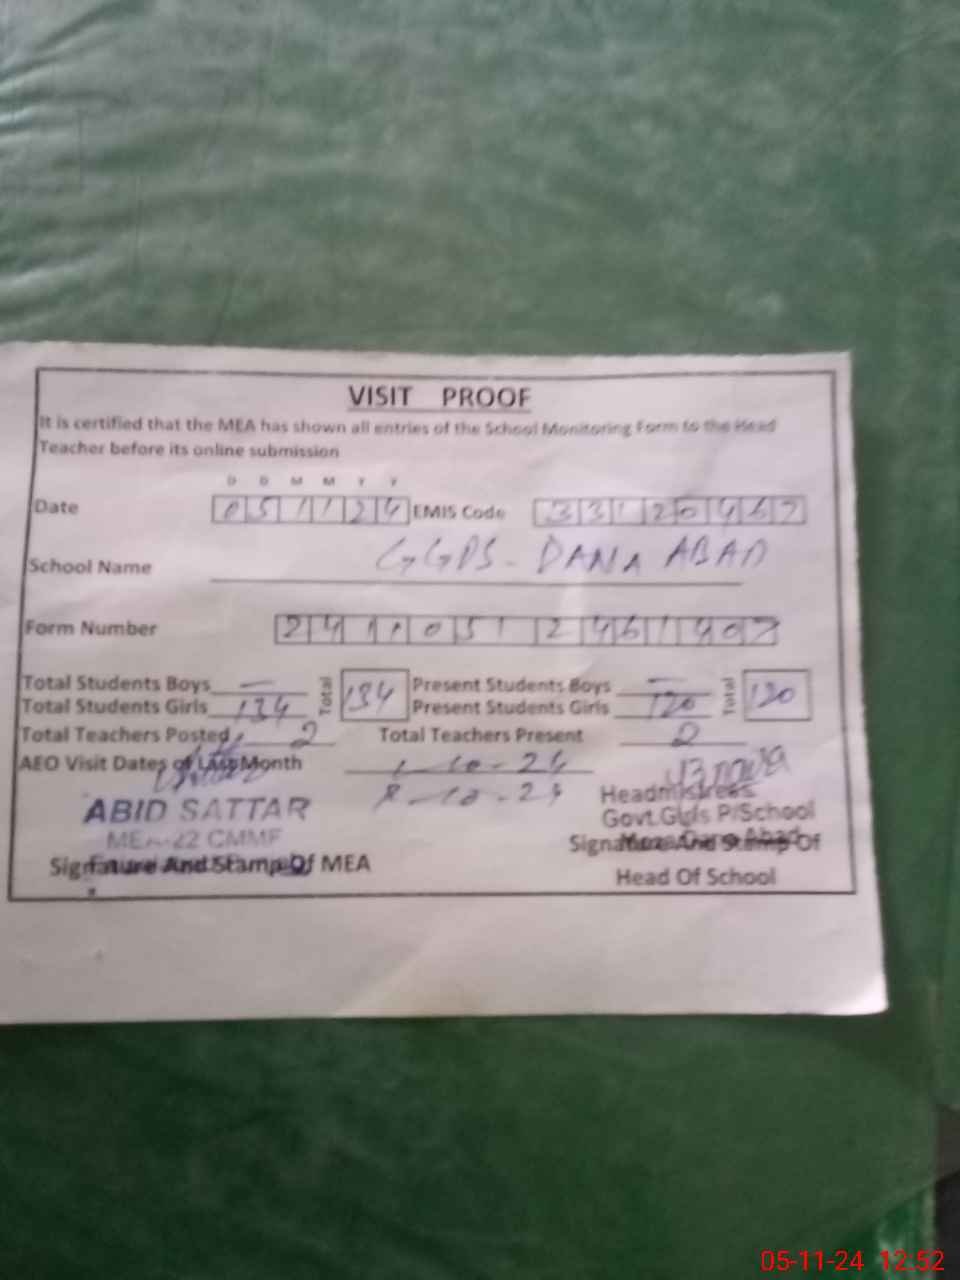 VISIT PROOF
It is certified that the MEA has shown all entries of the School Monitoring Form to the Head
Teacher before its online submission
D D M M Y Y
Date 051124 EMIS Code 33120467
School Name GGPS - DANA ABAD
Form Number
Total Students Boys — Total 134 Present Students Boys — Total 120
Total Students Girls 134 Present Students Girls 120
Total Teachers Posted 2 Total Teachers Present 2
AEO Visit Dates of Last Month 1-10-24
8-10-24
ABID SATTAR Headmistress
MEA-22 CMMF Govt. Girls P/School
Moza Dana Abad
Signature And Stamp Of MEA Signature And Stamp Of
Head Of School
05-11-24 12:52